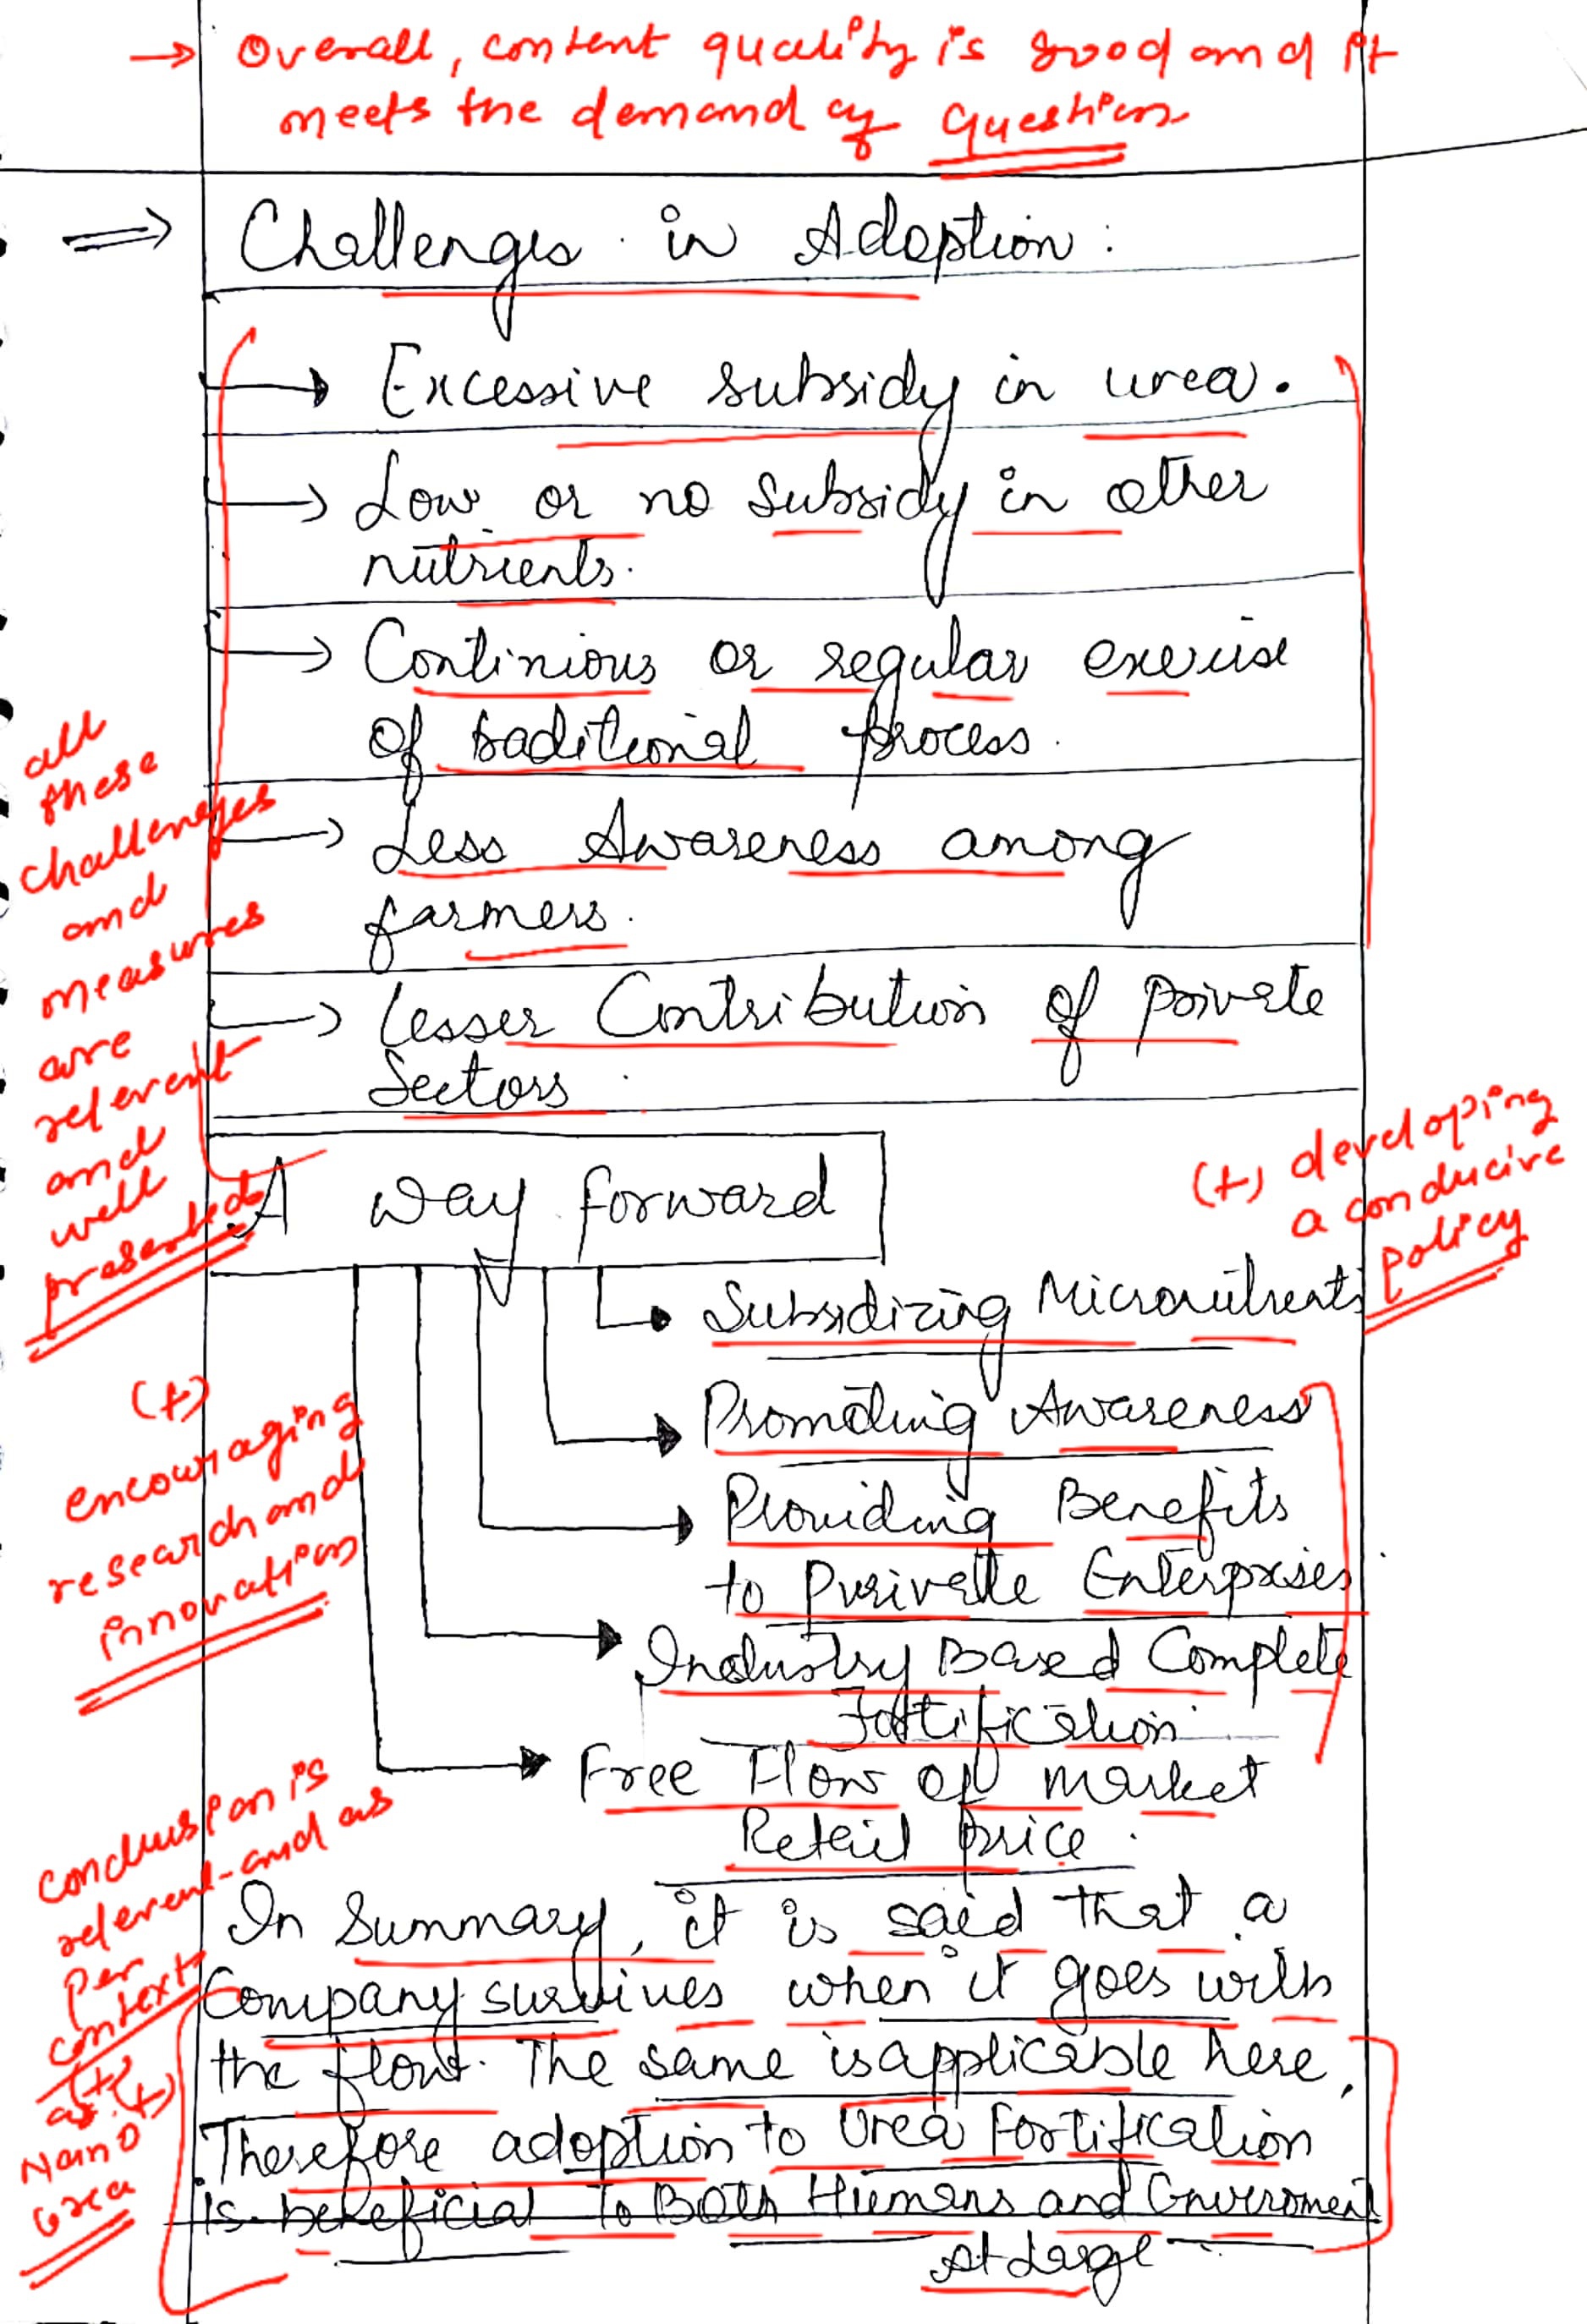 → Overall, content quality is good and it
meets the demand of question
⇒ Challenges in Adoption:
→ Excessive subsidy in urea.
→ Low or no subsidy in other
nutrients.
→ Continious or regular exercise
of traditional process.
→ Less Awareness among
farmers.
→ Lesser Contribution of private
Sectors.
all
these
challenges
and
measures
are
relevent
and
well
presented
A way forward
(+) developing
a conducive
policy
Subsidizing Micronutrients
Promoting Awareness
Providing Benefits
to Privatte Enterprises
Industry Based Complete
Fortification
Free Flow of market
Retail price.
(+)
encouraging
research and
innovation
conclusion is
relevent and as
per
context
Nano
Urea
In Summary, it is said that a
Company survives when it goes with
the flow. The same is applicable here,
Therefore adoption to Urea Fortification
is beneficial to Both Humans and Enviroment
At Large